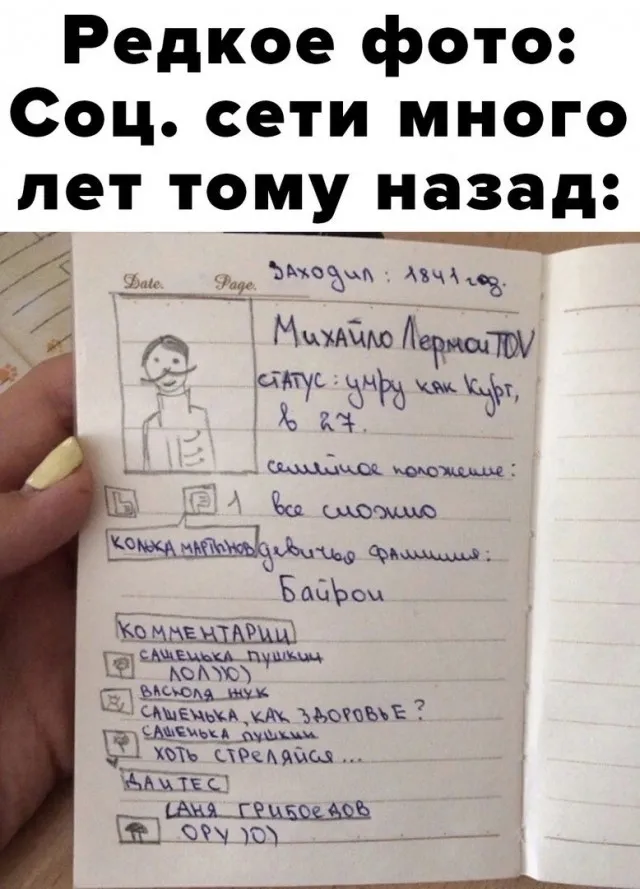 Редкое фото:
Соц. сети много
лет тому назад:
Date. Page.
Заходил : 1841 год.
Михайло ЛермонTOV
статус : умру как Курт,
в 27.
семейное положение :
1 все сложно
КОЛЬКА МАРТЫНОВ
девичья фамилия :
Байрон
КОММЕНТАРИИ
САШЕНЬКА ПУШКИН
ЛОЛ)0)
ВАСЬОЛЯ ЖУК
САШЕНЬКА, КАК ЗДОРОВЬЕ?
САШЕНЬКА ПУШКИН
ХОТЬ СТРЕЛЯЙСЯ...
ДАНТЕС
САНЯ ГРИБОЕДОВ
ОРУ )0)